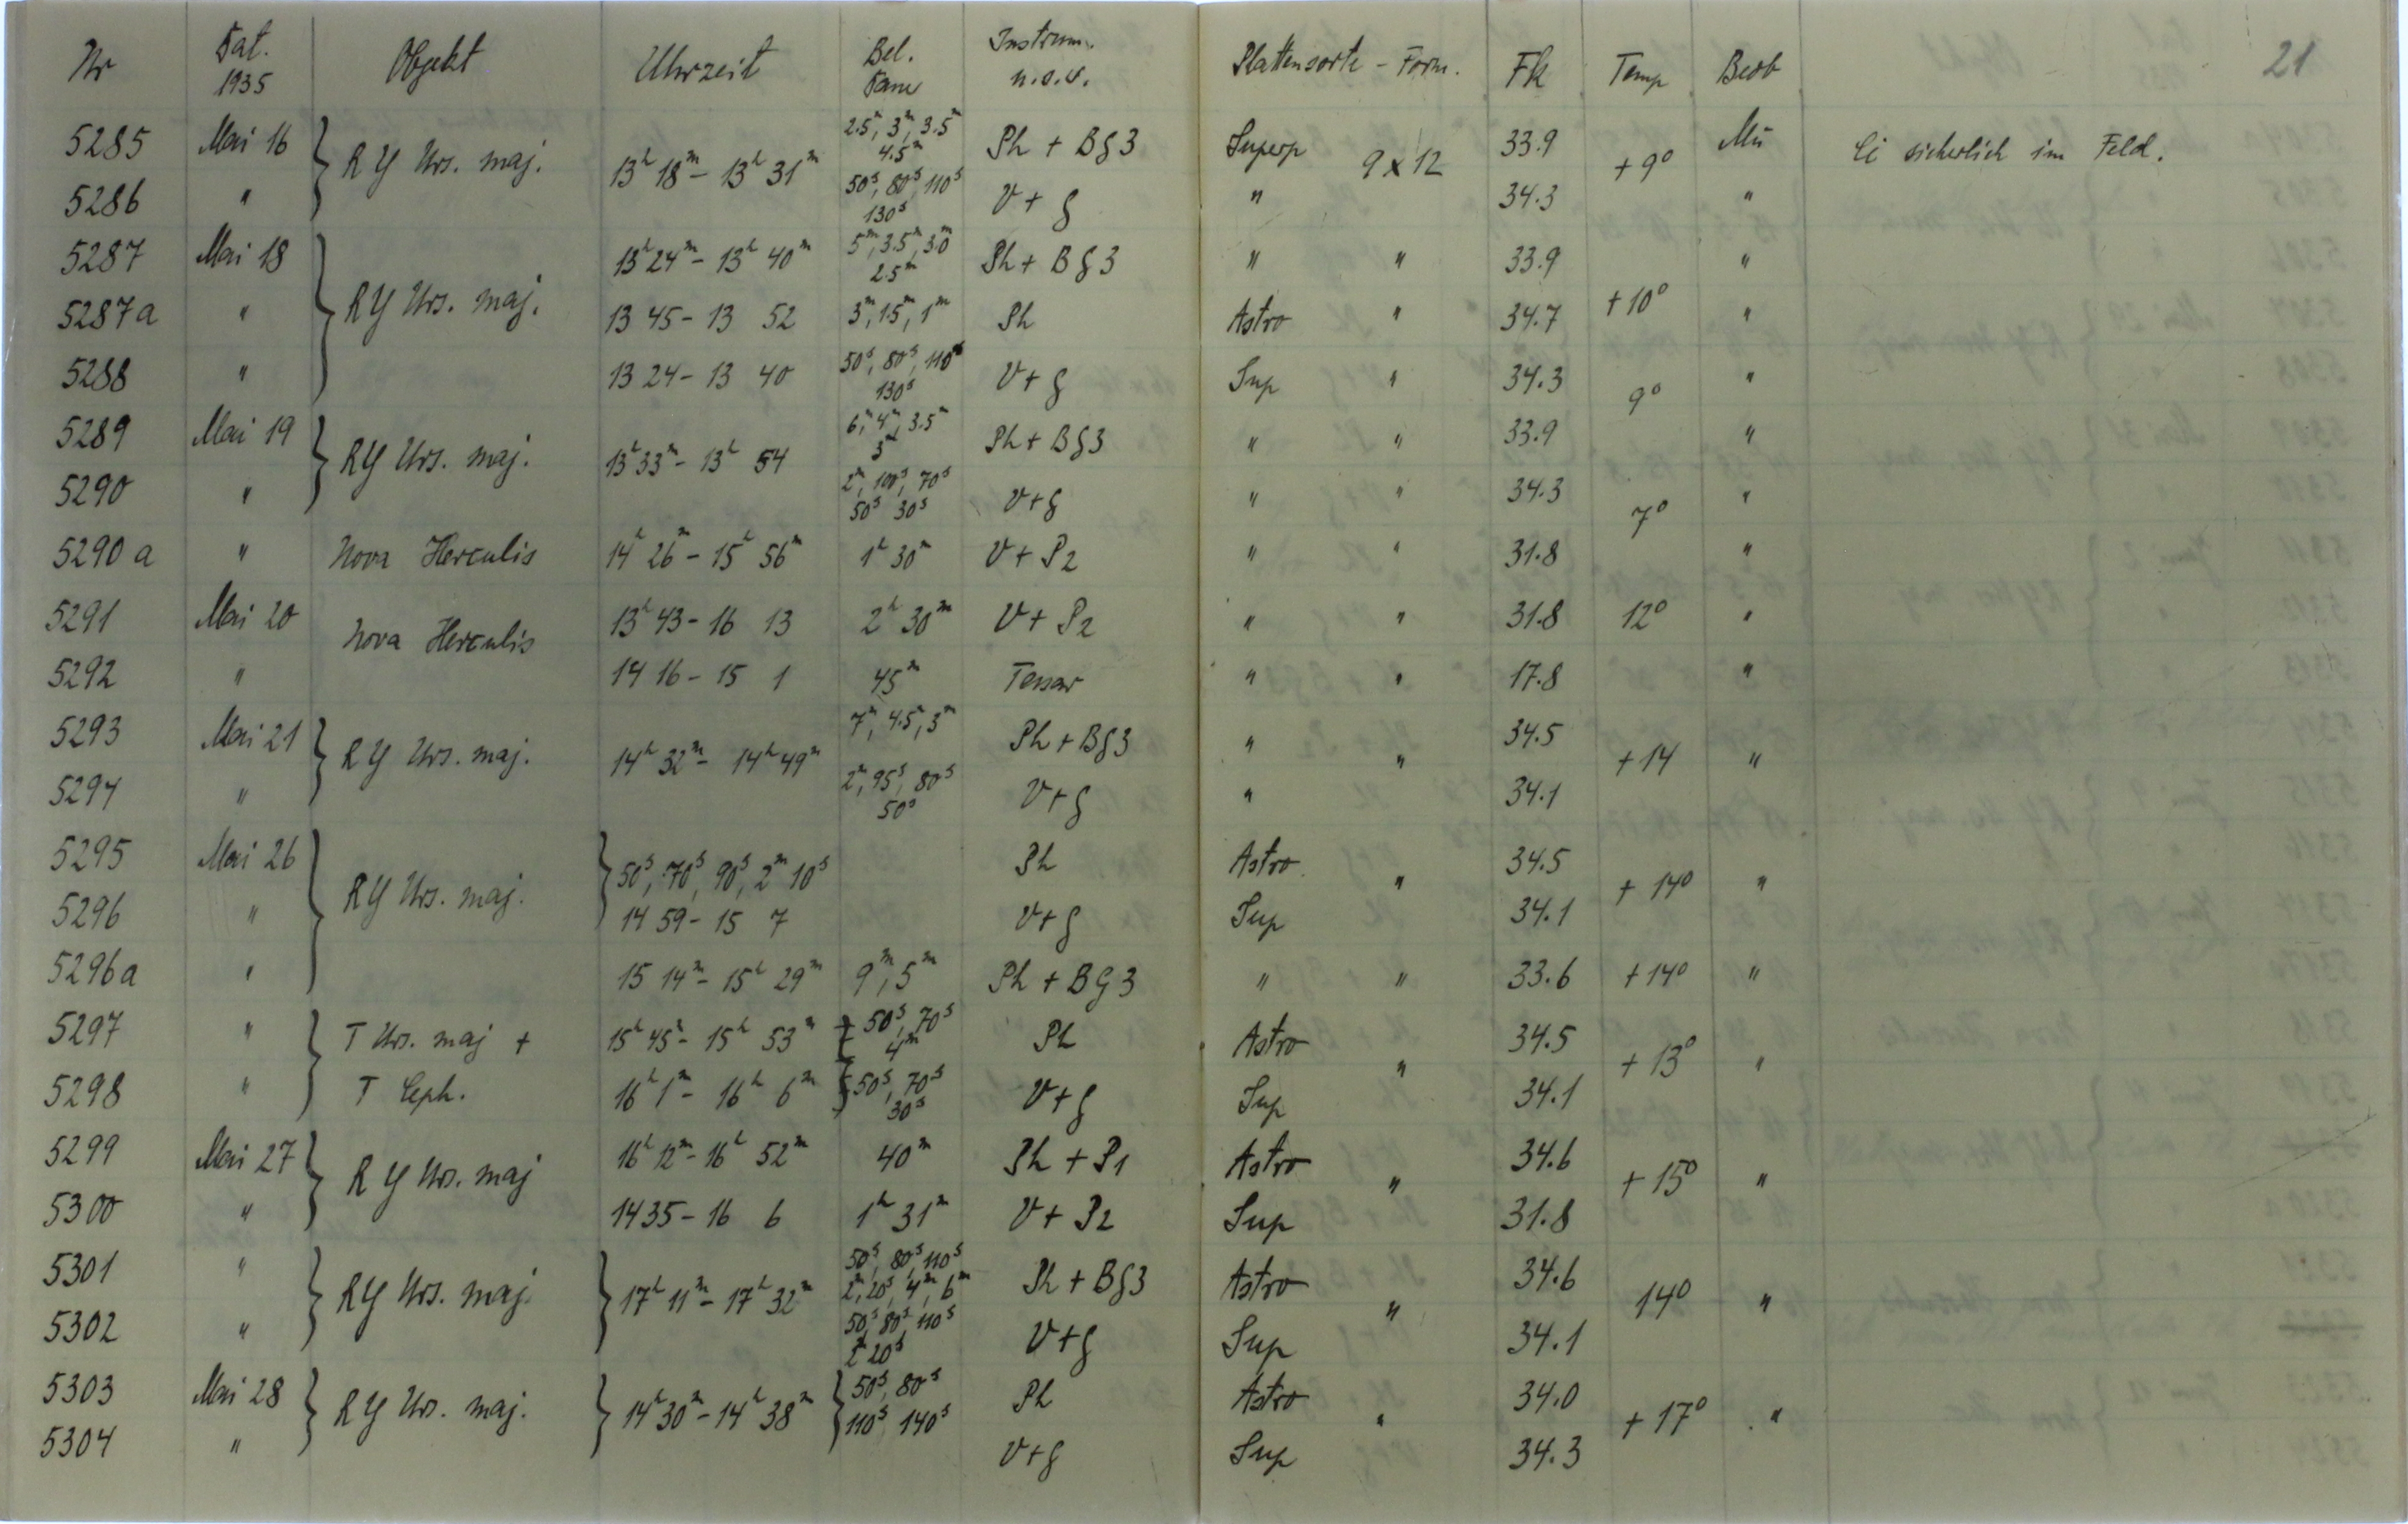 Nr Dat. 1935 Objekt Uhrzeit Bel. Dauer Instrum. u.s.w. Plattensorte - Form. Fk Temp Beob 21
5285 Mai 16 } RY Urs. maj. 13h 18m - 13h 31m 2.5m, 3m, 3.5m 4.5m Ph + Bg3 Superp 9 x 12 33.9 + 9° Mü Ci sicherlich im Feld.
5286 " 50s, 80s, 110s 130s V + g " 34.3 "
5287 Mai 18 13h 24m - 13h 40m 5m, 3.5m, 3.0m 2.5m Ph + Bg3 " " 33.9 "
5287a " } RY Urs. maj. 13 45 - 13 52 3m, 1.5m, 1m Ph Astro " 34.7 + 10° "
5288 " 13 24 - 13 40 50s, 80s, 110s 130s V + g Sup " 34.3 9° "
5289 Mai 19 } RY Urs. maj. 13h 33m - 13h 54 6m, 4m, 3.5m 3m Ph + Bg3 " " 33.9 "
5290 " 2m, 100s, 70s 50s 30s V + g " " 34.3 7° "
5290a " Nova Herculis 14h 26m - 15h 56m 1h 30m V + P2 " " 31.8 "
5291 Mai 20 Nova Herculis 13h 43 - 16 13 2h 30m V + P2 " " 31.8 12° "
5292 " 14 16 - 15 1 45m Tessar " " 17.8 "
5293 Mai 21 } RY Urs. maj. 14h 32m - 14h 49m 7m, 4.5m, 3m Ph + Bg3 " " 34.5 + 14 "
5294 " 2m, 95s, 80s 50s V + g " 34.1
5295 Mai 26 } RY Urs. maj. } 50s, 70s, 90s, 2m 10s Ph Astro " 34.5 + 14° "
5296 " 14 59 - 15 7 V + g Sup 34.1
5296a " 15 14m - 15h 29m 9m, 5m Ph + BG3 " " 33.6 + 14° "
5297 " } T Urs. maj + 15h 45m - 15h 53m 50s, 70s 4m Ph Astro " 34.5 + 13° "
5298 " T Ceph. 16h 1m - 16h 6m } 50s, 70s 30s V + g Sup 34.1
5299 Mai 27 } RY Urs. maj 16h 12m - 16h 52m 40m Ph + P1 Astro " 34.6 + 15° "
5300 " 14 35 - 16 6 1h 31m V + P2 Sup 31.8
5301 " } RY Urs. maj. } 17h 11m - 17h 32m 50s, 80s, 110s 2m, 20s, 4m, 6m Ph + Bg3 Astro " 34.6 14° "
5302 " 50s, 80s 110s 2m 20s V + g Sup 34.1
5303 Mai 28 } RY Urs. maj. } 14h 30m - 14h 38m } 50s, 80s 110s 140s Ph Astro " 34.0 + 17° "
5304 " V + g Sup 34.3